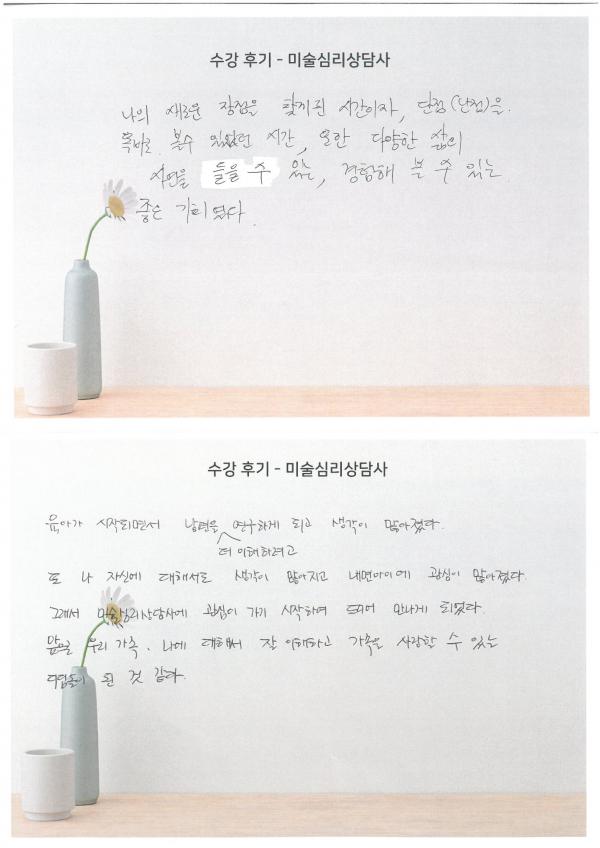 수강 후기 - 미술심리상담사
나의 새로운 장점을 찾게된 시간이자, 단점(단점)을
똑바로 볼수 있었던 시간, 또한 다양한 삶의
사연을 들을 수 있는, 경험해 볼 수 있는
좋은 기회였다.
수강 후기 - 미술심리상담사
육아가 시작되면서 남편을 연구하게 되고 생각이 많아졌다.
더 이해하려고
또 나 자신에 대해서도 생각이 많아지고 내면아이에 관심이 많아졌다.
그래서 미술심리상담사에 관심이 가기 시작하여 드디어 만나게 되었다.
우리 가족, 나에 대해서 잘 이해하고 가족을 사랑할 수 있는
된 것 같다.